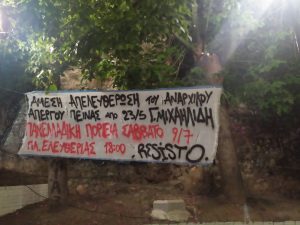 ΑΜΕΣΗ ΑΠΕΛΕΥΘΕΡΩΣΗ ΤΟΥ ΑΝΑΡΧΙΚΟΥ
ΑΠΕΡΓΟΥ ΠΕΙΝΑΣ ΑΠΟ 23/5 Γ.ΜΙΧΑΗΛΙΔΗ
ΠΑΝΕΛΛΑΔΙΚΗ ΠΟΡΕΙΑ ΣΑΒΒΑΤΟ 9/7
ΠΛ. ΕΛΕΥΘΕΡΙΑΣ 18:00 , RESISTO.